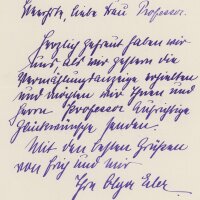 Verehrte, liebe Frau Professor.
Herzlich gefreut haben wir
uns, als wir gestern die
Vermählungsanzeige erhalten
und möchten wir Ihnen und
Herrn Professor Aufrichtige
Glückwünsche senden.
Mit den besten Grüßen
von Erich und mir
Ihre Olga Exler